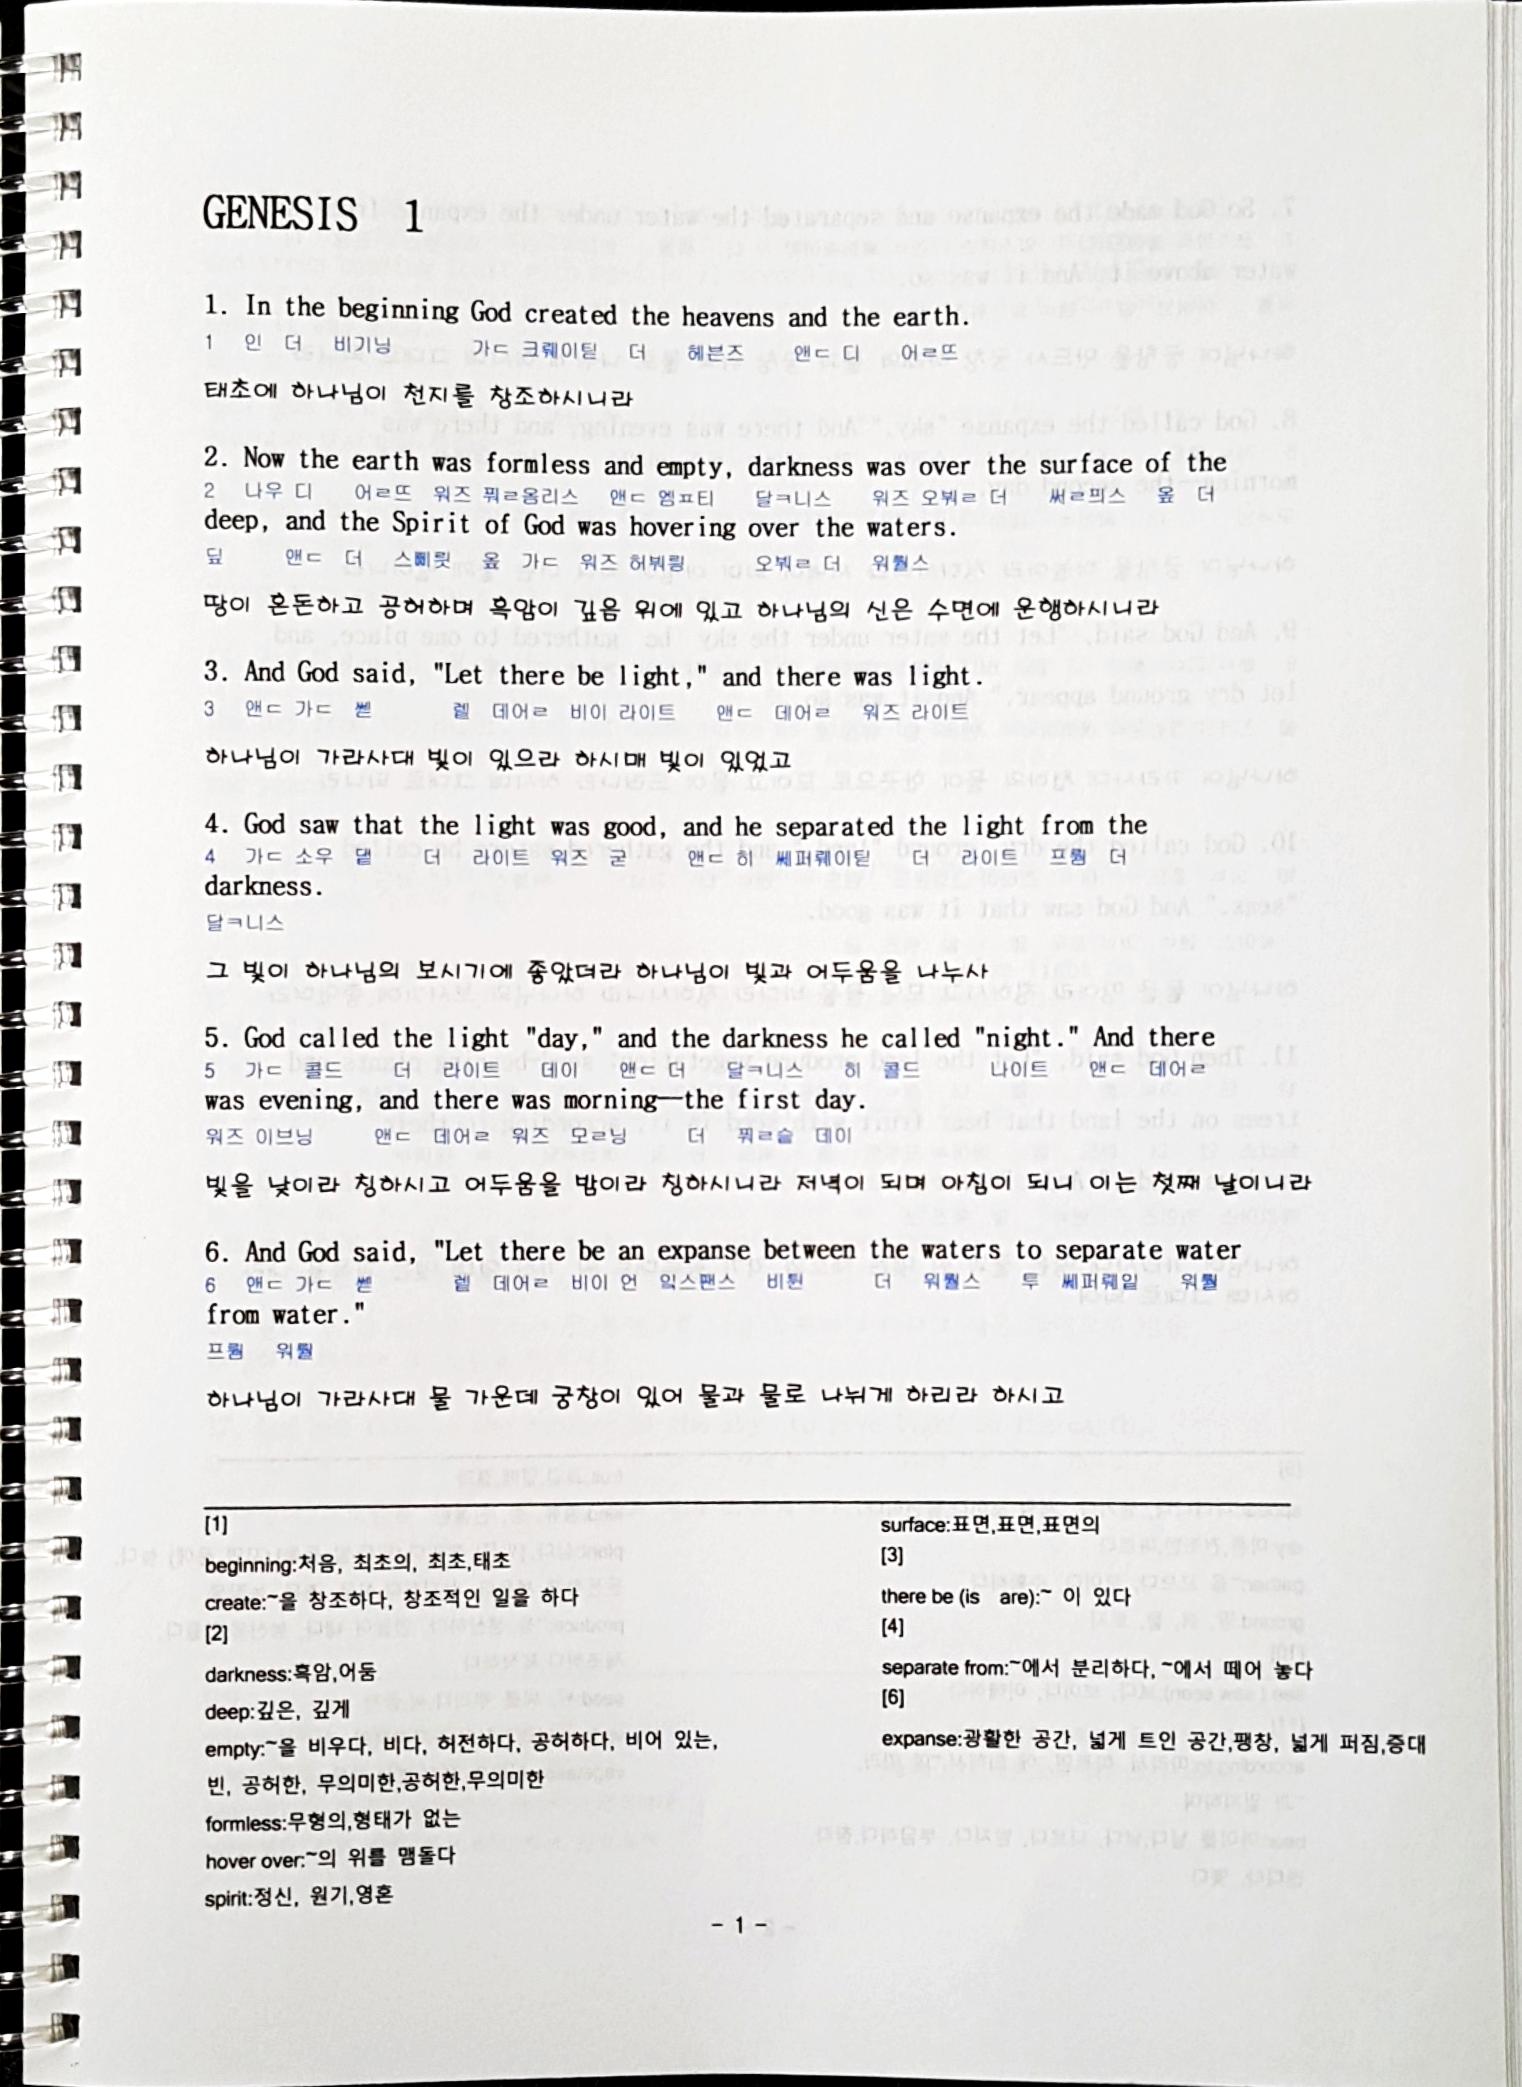 GENESIS 1
1. In the beginning God created the heavens and the earth.
1 인 더 비기닝 가ㄷ 크뤠이틷 더 헤븐즈 앤ㄷ 디 어ㄹ뜨
태초에 하나님이 천지를 창조하시니라
2. Now the earth was formless and empty, darkness was over the surface of the
2 나우 디 어ㄹ뜨 워즈 풔ㄹ옴리스 앤ㄷ 엠ㅍ티 달ㅋ니스 워즈 오붜ㄹ 더 써ㄹ픠스 옾 더
deep, and the Spirit of God was hovering over the waters.
딮 앤ㄷ 더 옾 가ㄷ 워즈 허붜륑 오붜ㄹ 더 워뤌스
땅이 혼돈하고 공허하며 흑암이 깊음 위에 있고 하나님의 신은 수면에 운행하시니라
3. And God said, "Let there be light," and there was light.
3 앤ㄷ 가ㄷ 쎋 렡 데어ㄹ 비이 라이트 앤ㄷ 데어ㄹ 워즈 라이트
하나님이 가라사대 빛이 있으라 하시매 빛이 있었고
4. God saw that the light was good, and he separated the light from the
4 가ㄷ 소우 댙 더 라이트 워즈 굳 앤ㄷ 히 쎄퍼뤠이틷 더 라이트 프뤔 더
darkness.
달ㅋ니스
그 빛이 하나님의 보시기에 좋았더라 하나님이 빛과 어두움을 나누사
5. God called the light "day," and the darkness he called "night." And there
5 가ㄷ 콜드 더 라이트 데이 앤ㄷ 더 달ㅋ니스 히 콜드 나이트 앤ㄷ 데어ㄹ
was evening, and there was morning—the first day.
워즈 이브닝 앤ㄷ 데어ㄹ 워즈 모ㄹ닝 더 풔ㄹ슽 데이
빛을 낮이라 칭하시고 어두움을 밤이라 칭하시니라 저녁이 되며 아침이 되니 이는 첫째 날이니라
6. And God said, "Let there be an expanse between the waters to separate water
6 앤ㄷ 가ㄷ 쎋 렡 데어ㄹ 비이 언 잌스팬스 비튄 더 워뤌스 투 쎄퍼뤠잍 워뤌
from water."
프뤔 워뤌
하나님이 가라사대 물 가운데 궁창이 있어 물과 물로 나뉘게 하리라 하시고
[1]
beginning:처음, 최초의, 최초,태초
create:~을 창조하다, 창조적인 일을 하다
[2]
darkness:흑암,어둠
deep:깊은, 깊게
empty:~을 비우다, 비다, 허전하다, 공허하다, 비어 있는,
빈, 공허한, 무의미한,공허한,무의미한
formless:무형의,형태가 없는
hover over:~의 위를 맴돌다
spirit:정신, 원기,영혼
surface:표면,표면,표면의
[3]
there be (is are):~ 이 있다
[4]
separate from:~에서 분리하다, ~에서 떼어 놓다
[6]
expanse:광활한 공간, 넓게 트인 공간,팽창, 넓게 퍼짐,증대
- 1 -